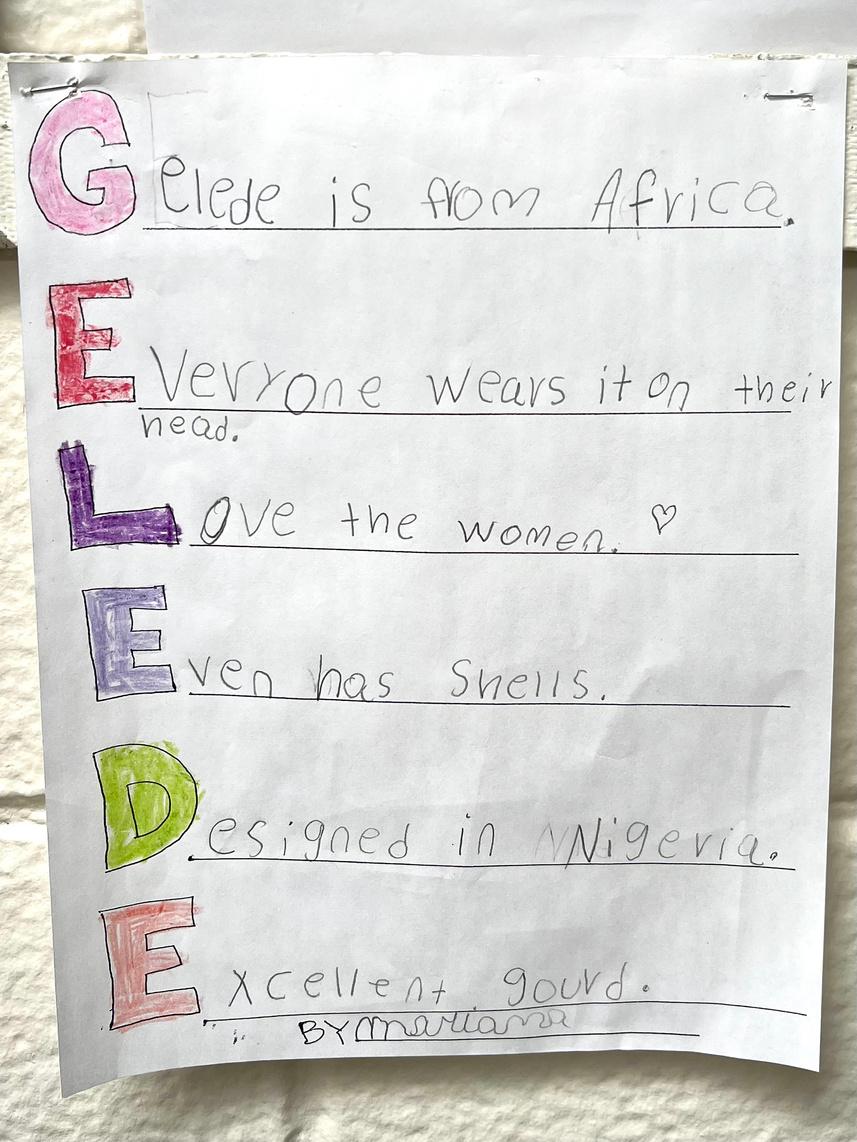 Gelede is from Africa.
EVeryone wears it on their
head.
Love the women. ♡
Even has Shells.
Designed in Nigeria.
Excellent gourd.
BY mariana